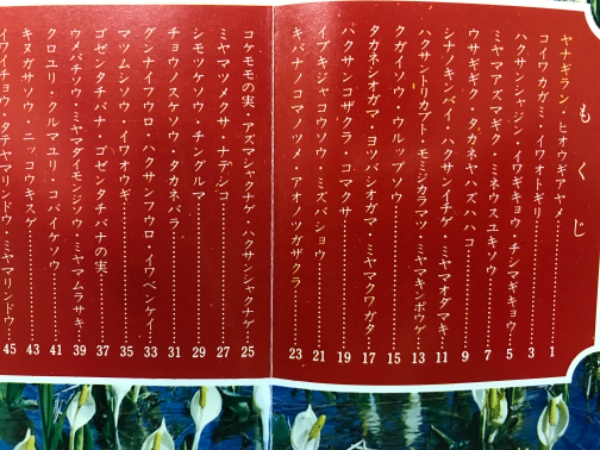 もくじ
ヤナギラン・ヒオウギアヤメ……………1
コイワカガミ・イワオトギリ……………3
ハクサンシャジン・イワギキョウ・チシマギキョウ……5
ミヤマアズマギク・ミネウスユキソウ……………7
ウサギギク・タカネヤハズハハコ……………9
シナノキンバイ・ハクサンイチゲ・ミヤマオダマキ……11
ハクサントリカブト・モミジカラマツ・ミヤマキンポウゲ……13
クガイソウ・ウルップソウ……………15
タカネシオガマ・ヨツバシオガマ・ミヤマクワガタ……17
ハクサンコザクラ・コマクサ……………19
イブキジャコウソウ・ミズバショウ……………21
キバナノコマノツメ・アオノツガザクラ……………23
コケモモの実・アズマシャクナゲ・ハクサンシャクナゲ 25
ミヤマツメクサ・ナデシコ……………27
シモツケソウ・チングルマ……………29
チョウノスケソウ・タカネバラ……………31
グンナイフウロ・ハクサンフウロ・イワベンケイ……33
マツムシソウ・イワオウギ……………35
ゴゼンタチバナ・ゴゼンタチバナの実……………37
ウメバチソウ・ミヤマダイモンジソウ・ミヤマムラサキ……39
クロユリ・クルマユリ・コバイケソウ……………41
キヌガサソウ・ニッコウキスゲ……………43
イワイチョウ・タテヤマリンドウ・ミヤマリンドウ……45